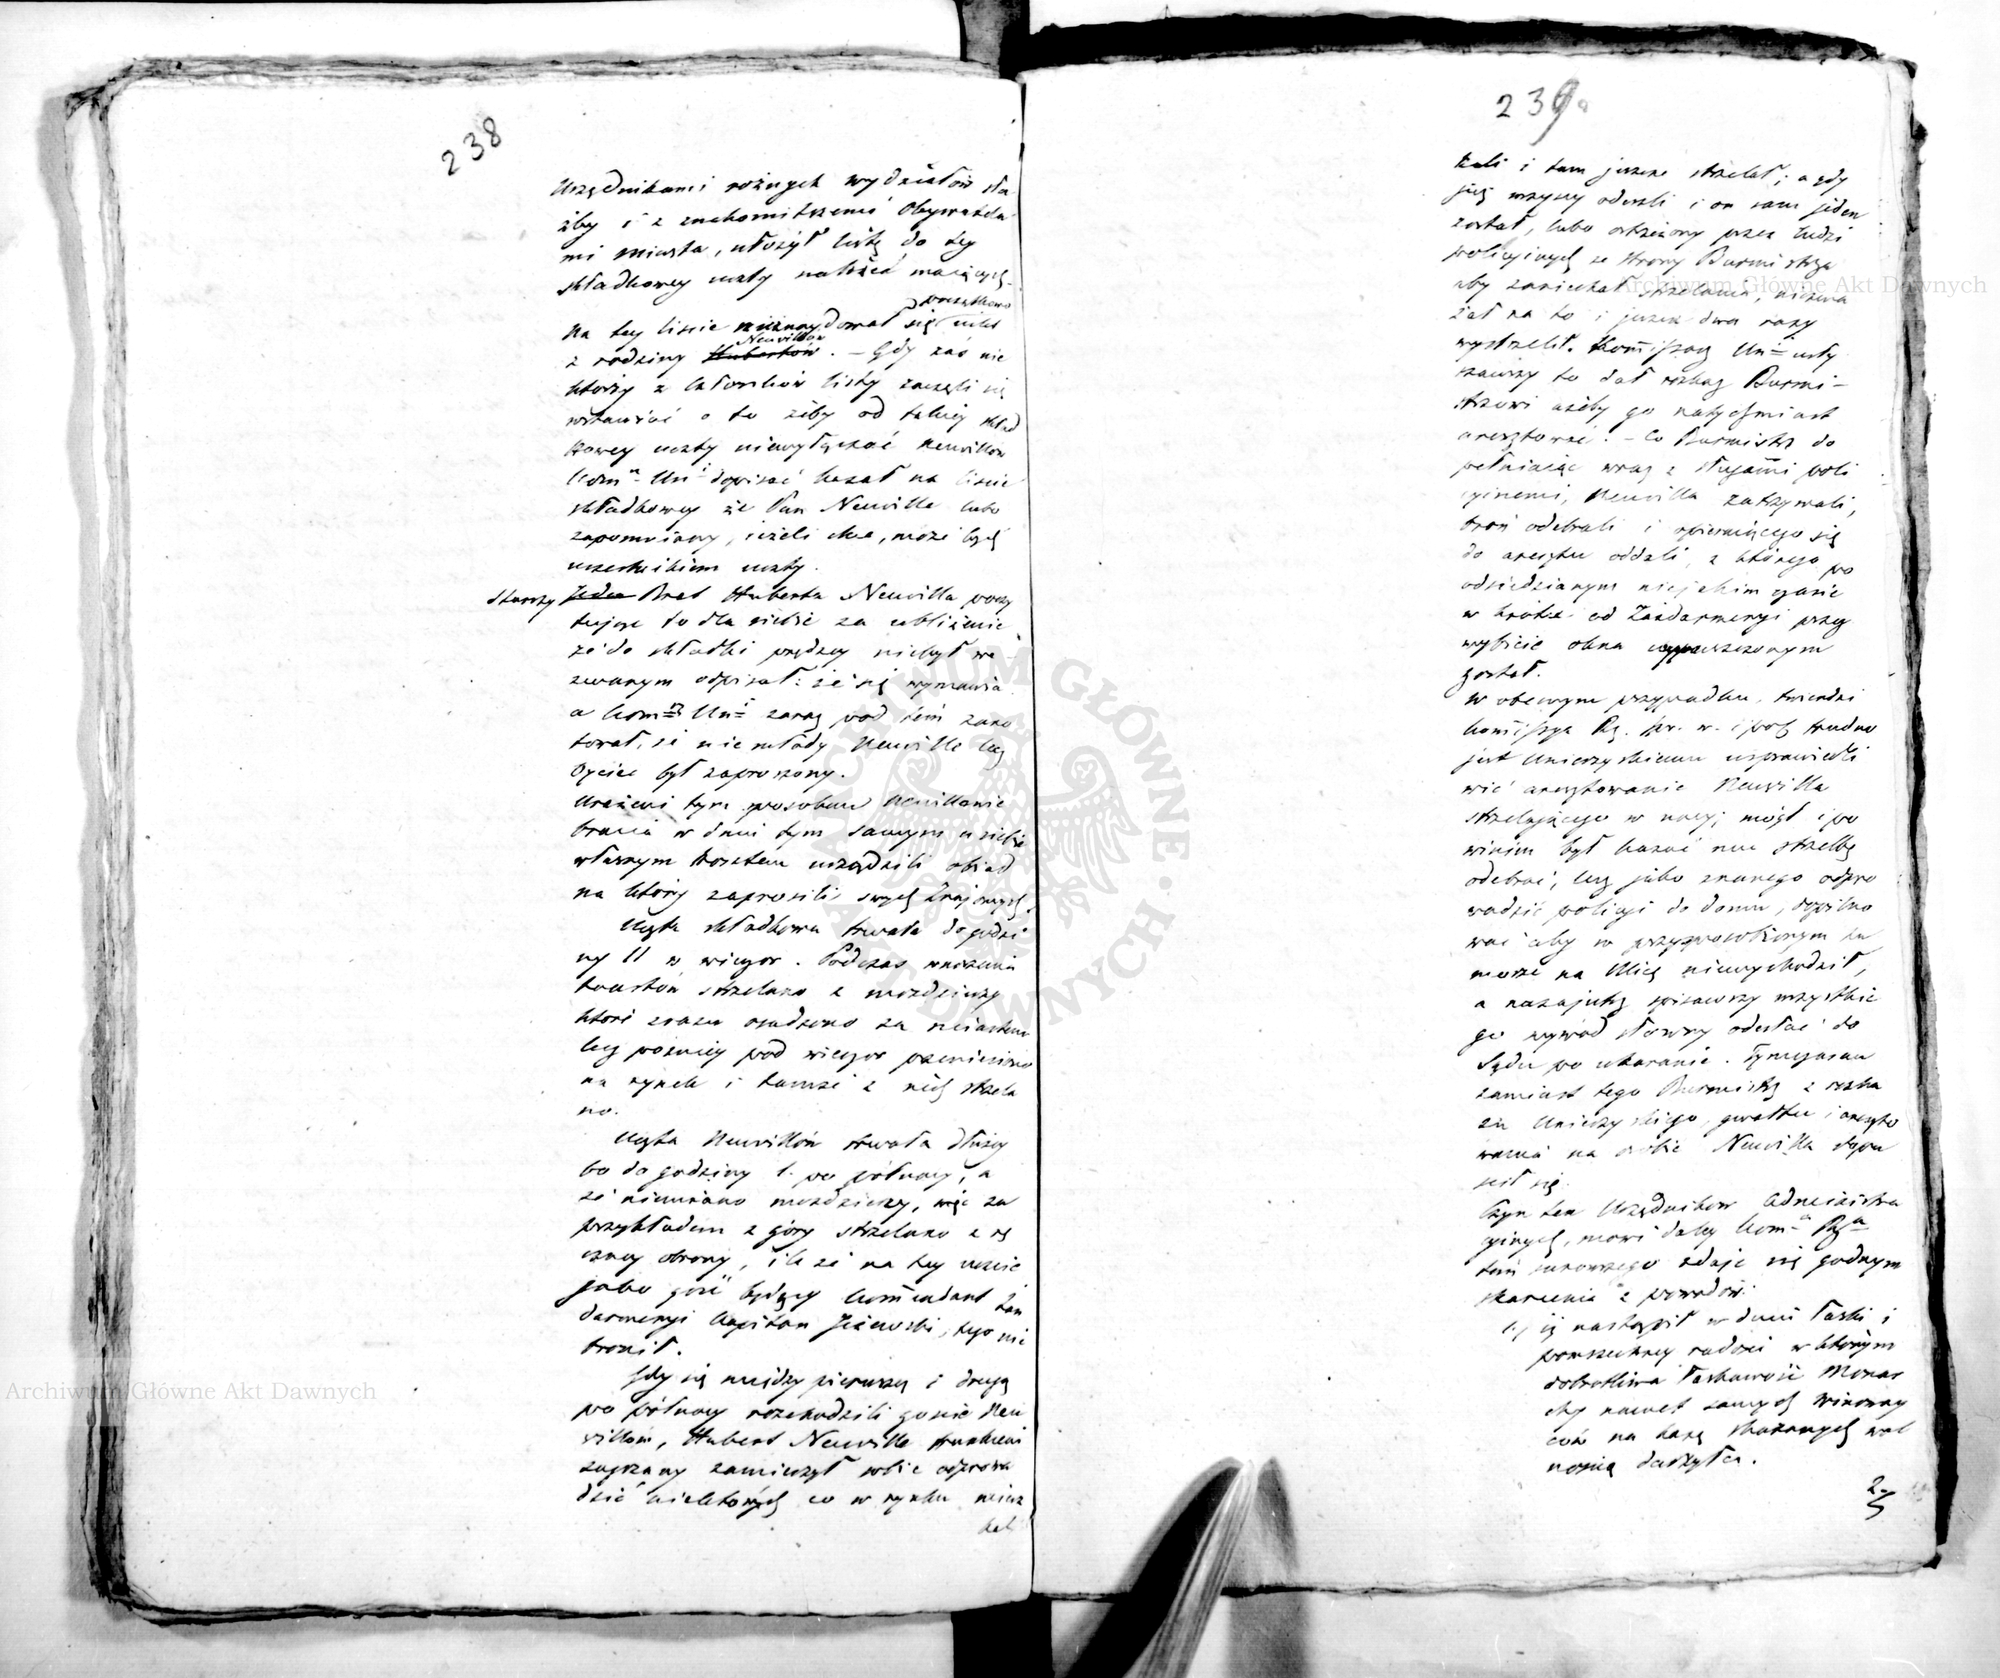 238
Urzędnikami rożnych wydziałów słu-
żby i z znakomitszemi Obywatela
mi miasta, ułożył listę do tey
składkowey uczty należeć maiących
Na tey liscie nieznaydował się początkowo nikt
z rodziny Neuvillów. – Gdy zaś nie
ktorzy z członków listy zaczęli się
wstawiać o to żeby od takiey skład
kowey uczty niewyłączać Neuvillów
Kom. Un. dopisać kazał na liscie
składkowey że Pan Neuville lubo
zapomniany, ieżeli chce, może być
uczestnikiem uczty.
Starszy Brat Huberta Neuvilla poczy
tuiąc to dla siebie za ubliżenie
że do składki prędzey niebył we
zwanym odpisał: że się wymawia
a Komrz Uni zaraz pod tém zano
tował, że nie młody Neuville lecz
Oyciec był zaproszony.
Urażeni tym sposobem Neuillowie
bracia w dniu tym samym u siebie
własnym kosztem urządzili obiad
na który zaprosili swych znajomych.
Uczta składkowa trwała do godzi
ny 11 w wieczor. Podczas wnoszenia
toastów strzelano z mozdzierzy
które zrazu osadzono za miastem
lecz pozniey pod wieczor przeniesiono
na rynek i tamże z nich strzela
no.
Uczta Neuvillów trwała dłużey
bo do godziny 1. po północy, a
że niemiano mozdzierzy, więc za
przykładem z góry strzelano z rę
czney obrony, ile że na tey uczcie
jako gość będący Kommendant Żan
darmeryi Kapitan Jeżewski, tego nie
bronił.
Gdy się między pierwszą i drugą
po północy rozchodzili goscie Neu
villów, Hubert Neuville trunkiem
zagrzany zamierzył sobie odprowa
dzić niektórych co w rynku miesz
kal
239
kali i tam jeszcze strzelał; a gdy
już wszyscy odeszli i on sam jeden
został, lubo ostrzeżony przez ludzi
policyinych ze strony Burmistrza
aby zaniechał strzelania, niezwa
żał na to i jeszcze dwa razy
wystrzelił. Kommissarz Uni usły
szawszy to dał rozkaz Burmi-
strzowi ażeby go natychmiast
aresztować. – Co Burmistrz do
pełniaiąc wraz z sługami poli
cyinemi, Neuvilla zatrzymali,
broń odebrali i opieraiącego się
do aresztu oddali, z którego po
odsiedzianym niejakim czasie
w krótce od Żandarmeryi przez
wybicie okna wypuszczonym
został.
W obecnym przypadku, twierdzi
Kommissya Rz. spr. w. i pol. trudno
jest Unierzyskiemu usprawiedli
wić aresztowanie Neuvilla
strzelaiącego w nocy; mógł i po
winien był kazać mu strzelbę
odebrać, lecz jako znanego odpro
wadzić policyi do domu, dopilno
wać aby w przyzwoitszym hu
morze na Ulicę niewychodził,
a nazajutrz spisawszy wszystkie
go wywód słowny odesłać do
Sądu po ukaranie. Tymczasem
zamiast tego Burmistrz z rozka
zu Unierzyskiego, gwałtu i areszto
wania na osobie Neuvilla dopu
scił się.
Czyn ten Urzędników Administra
cyinych, mówi daley Kom. Rz.
tém surowszego zdaje się godnym
skarcenia z powodów:
1.) iż nastąpił w dniu łaski i
powszechney radości w którym
dobrotliwa łaskawość Monar
chy nawet samych winoway
ców na karę skazanych wol
nością darzyła.
2.